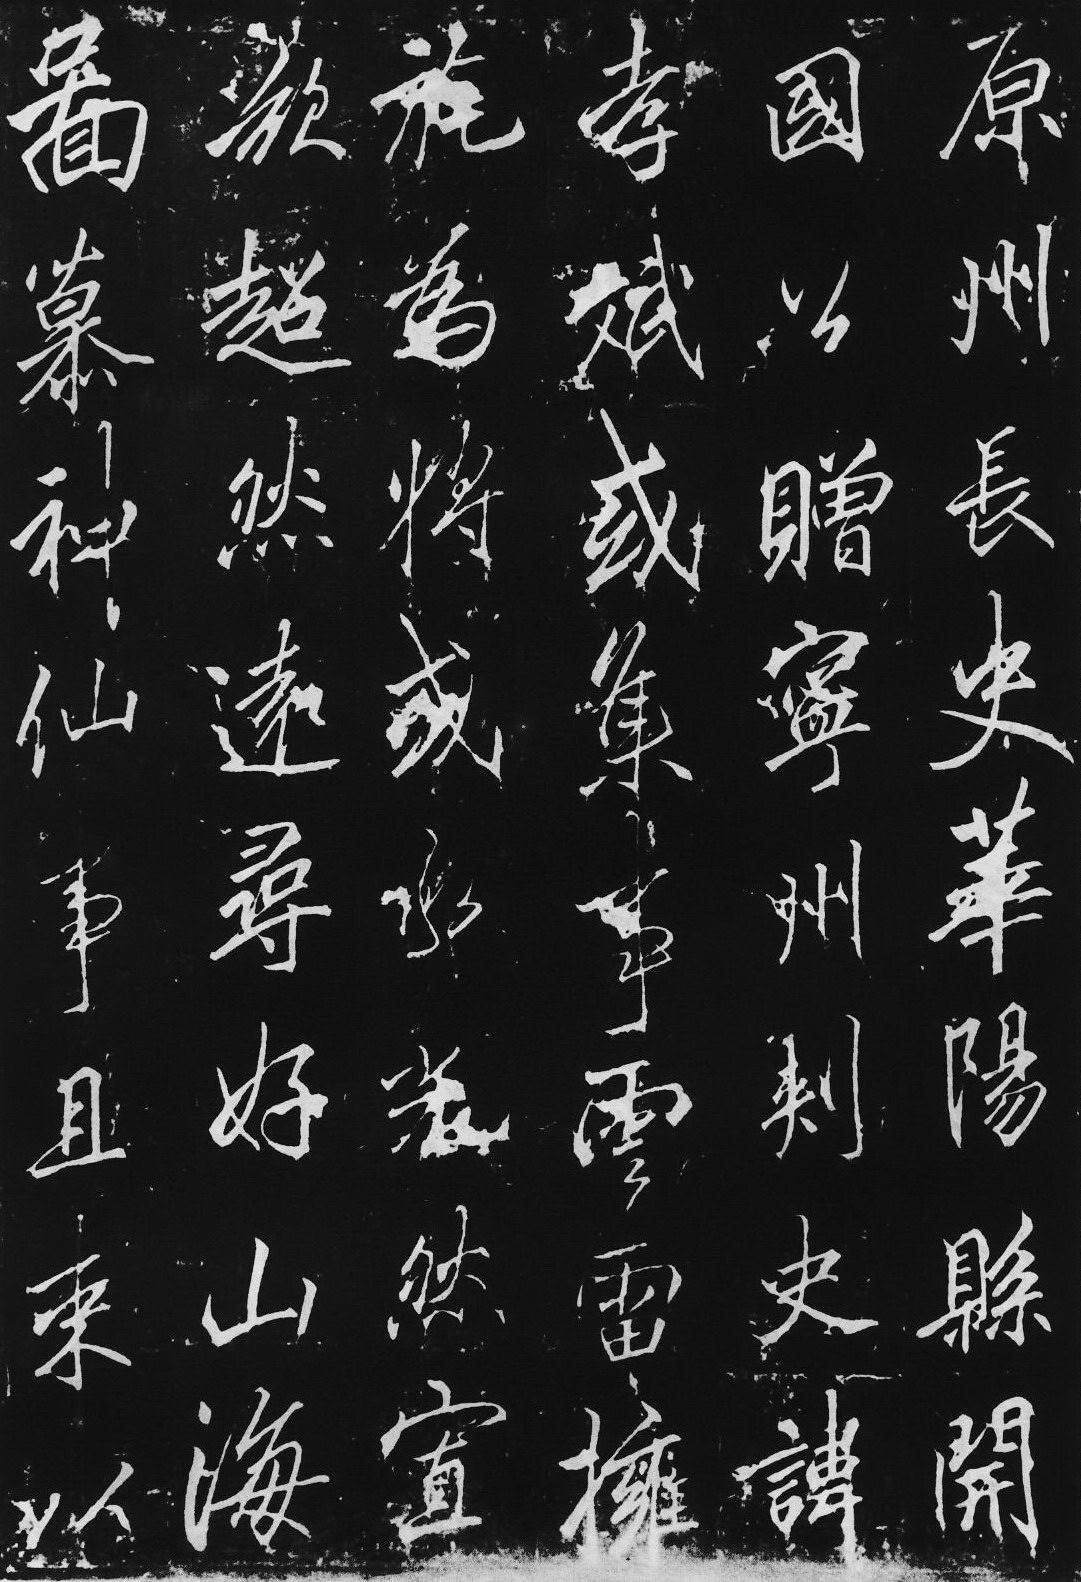 原州長史華陽縣開
國公贈寧州刺史諱
孝斌或集事雲雷擁
旄為將或然
超然遠尋好山海
圖慕神仙事且束以